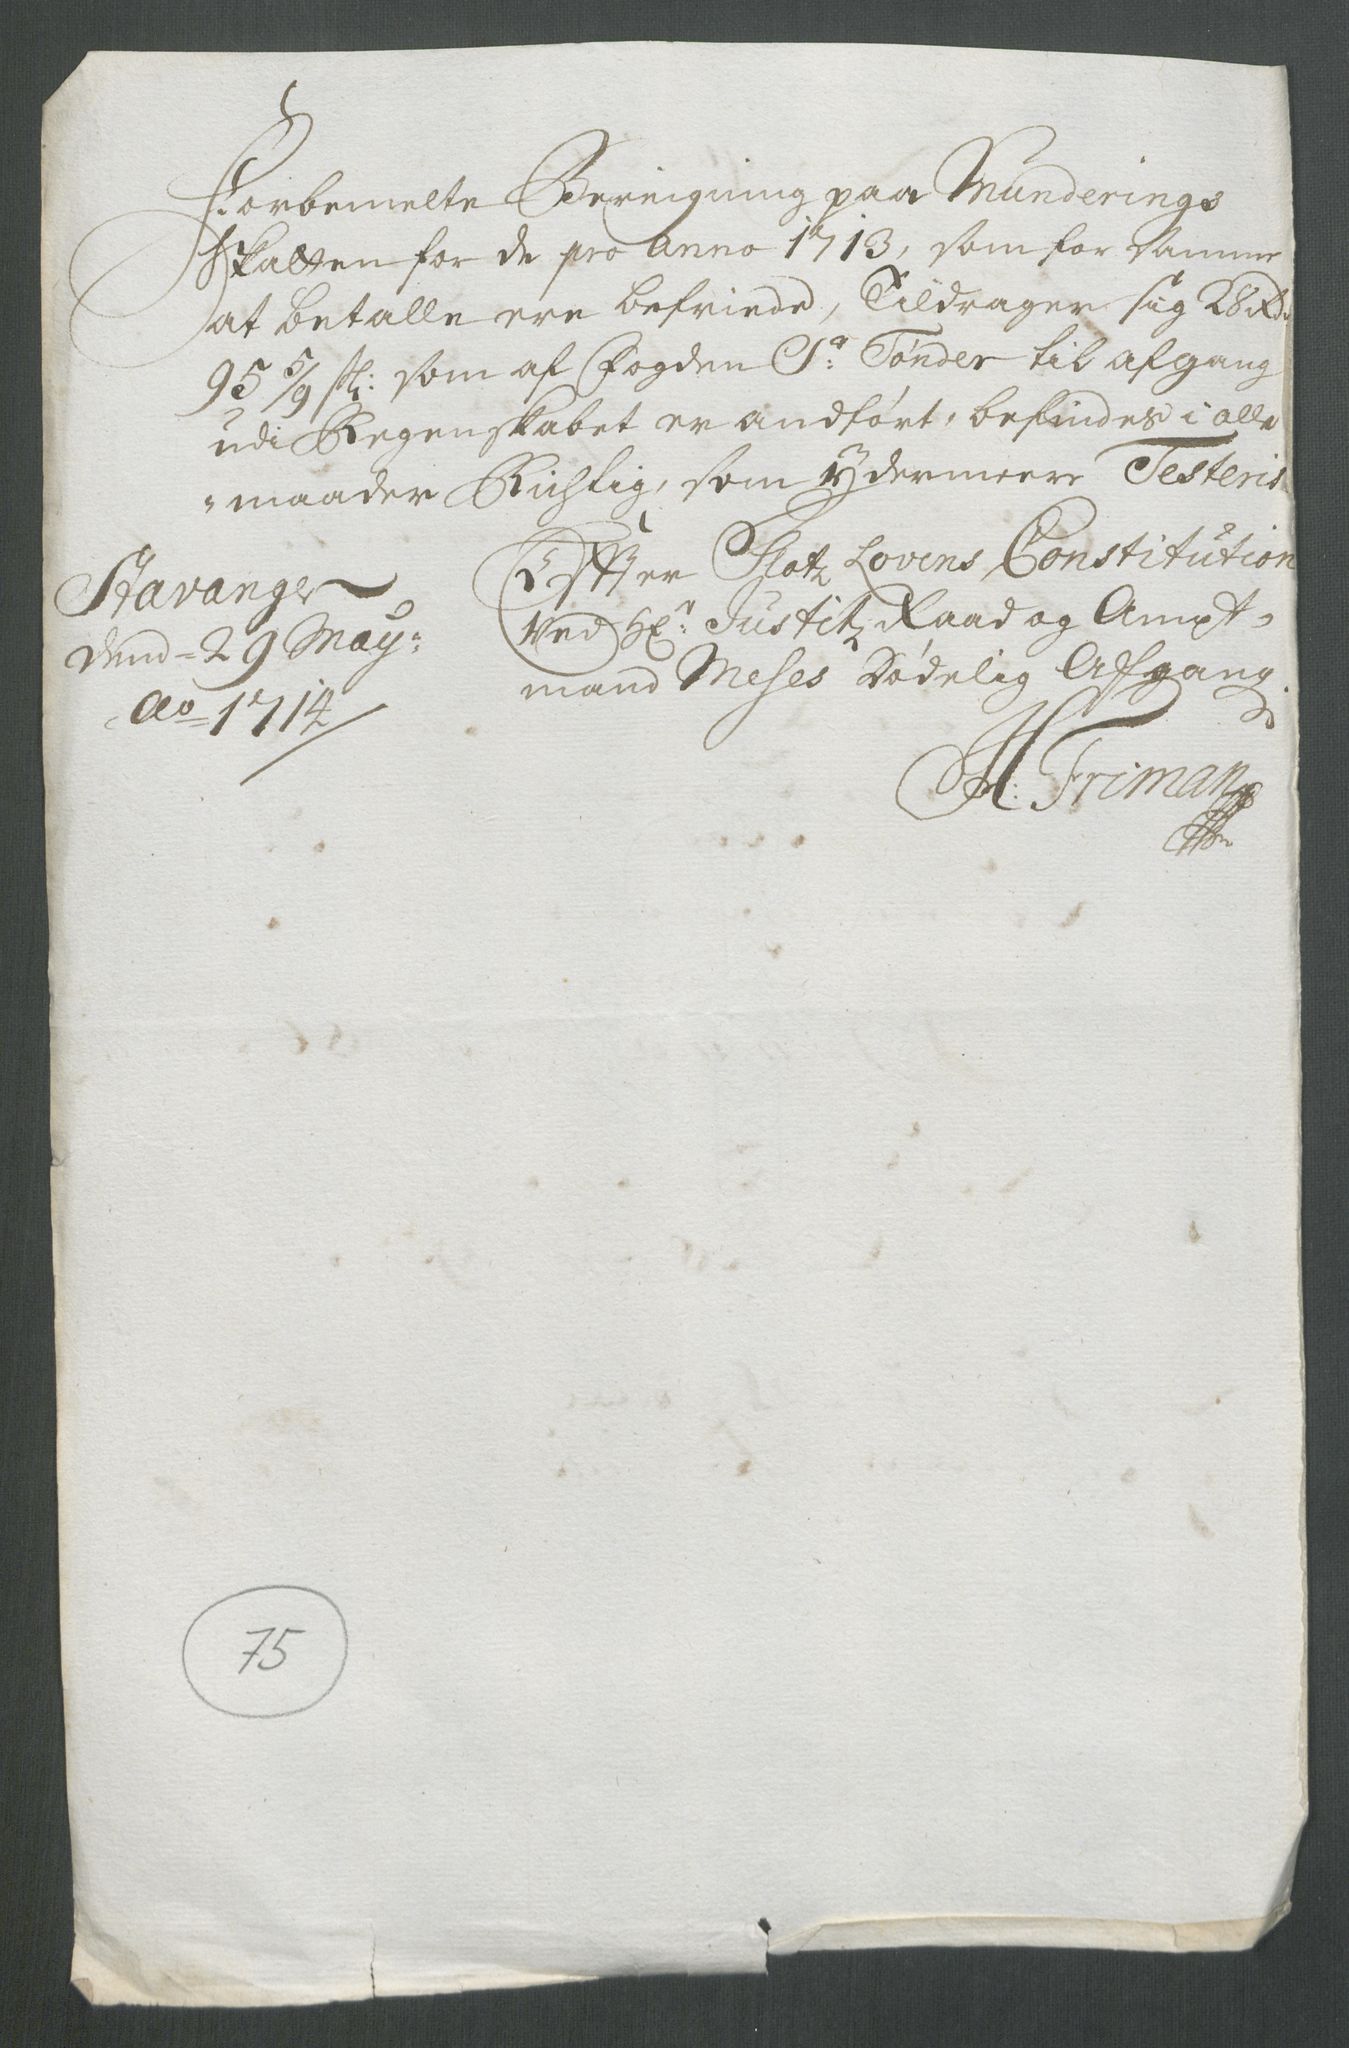 Forbemelte Bereigning paa Munderings
Skatten for de pro Anno 1713, som for samme
at betalle ere befriede, Tildrager sig 28 Rd:
95 5/9 sk: som af Fogden Sr: Tønder til afgang
udi Regenskabet er andført, befindes i alle
maader Richtig, som ÿdermeere Testeris
Stavanger
dend 29 May:
Ao 1714
Efter Slotz Lovens Constitution
ved Hr: Justitz Raad og Ampt-
mand Meses Dødelig Afgang.
H: Friman
75